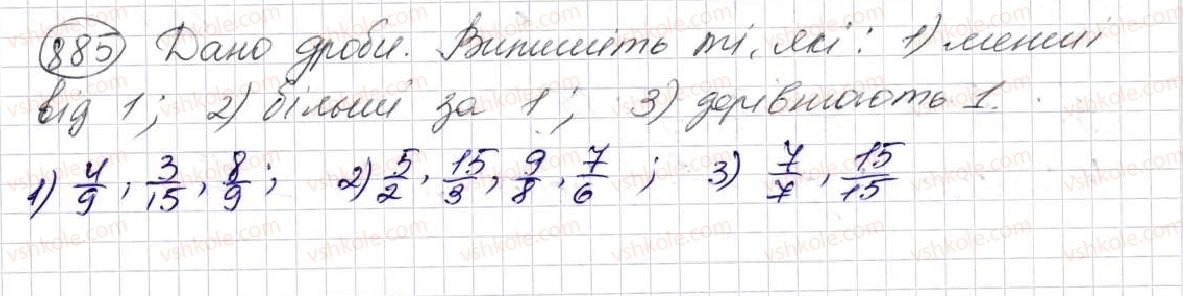 885 Дано дроби. Випишіть ті, які: 1) менші
від 1; 2) більші за 1; 3) дорівнюють 1.
1) 4/9, 3/15, 8/9; 2) 5/2, 15/3, 9/8, 7/6; 3) 7/7, 15/15